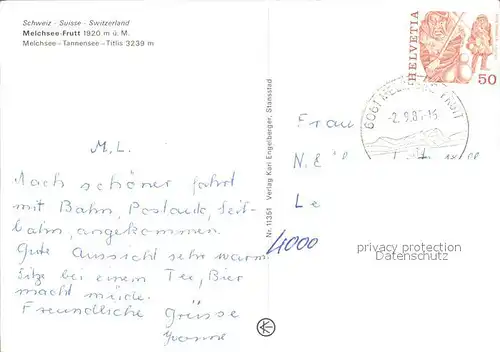 Schweiz - Suisse - Switzerland
Melchsee-Frutt 1920 m ü. M.
Melchsee - Tannensee - Titlis 3239 m
M. L.
Nach schöner fahrt
mit Bahn, Postauto, Seil-
bahn, angekommen.
Gute Aussicht sehr warm.
Sitze bei einem Tee, Bier
macht müde.
Freundliche Grüsse
Yvonne
Nr. 11351 Verlag Karl Engelberger, Stansstad
HELVETIA
50
6061 MELCHSEE FRUTT
-2.9.8
Frau
N.
Le
4000
privacy protection
Datenschutz